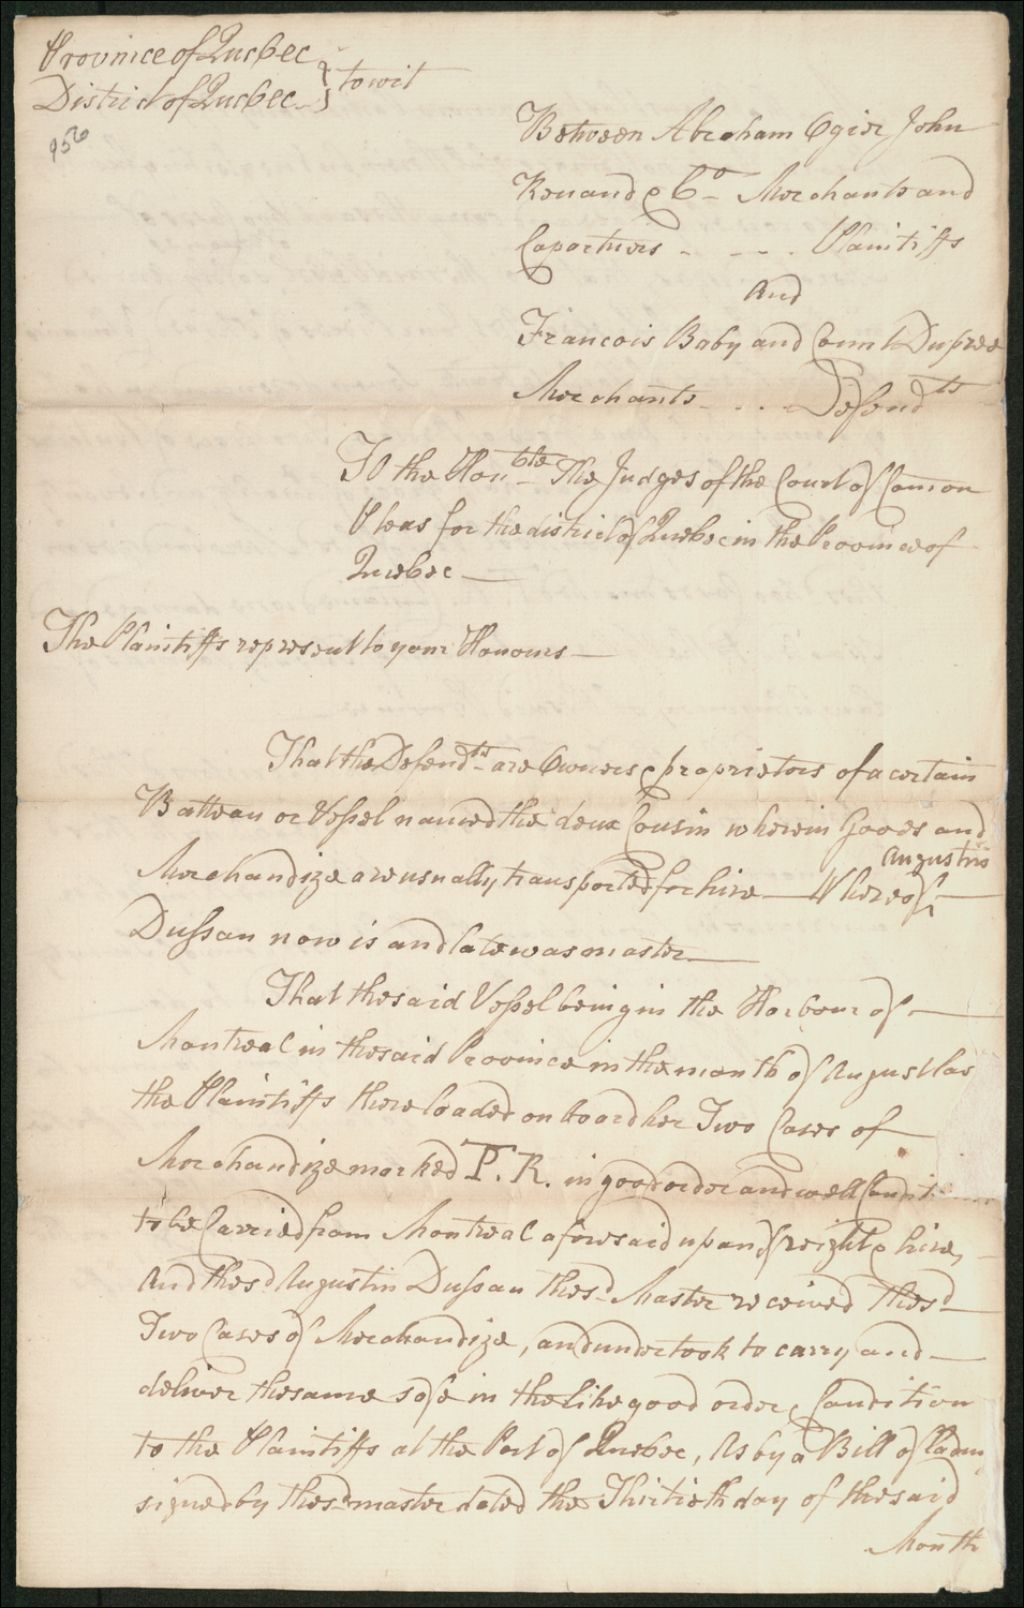 Province of Quebec
District of Quebec } to wit
956
Between Abraham Ogier John
Renaud & Co. Merchants and
Copartners - - - . Plaintiffs
And
Francois Baby and Connt Dupree
Merchants - . . . Defendts
To the Honble The Judges of the Court of Common
Pleas for the district of Quebec in the Province of
Quebec —
The Plaintiffs represent to your Honours —
That the Defendts are Owners & proprietors of a certain
Batteau or Vessel named the deux Cousin wherein Goods and
Merchandize are usually transported for hire — Whereof Augustin
Dussau now is and late was master —
That the said Vessel being in the Harbour of —
Montreal in the said Province in the month of August las
the Plaintiffs there loaded on board her Two Cases of
Merchandize marked P. R. in good order and well Condit
to be Carried from Montreal aforesaid upand freight & hire,
And the sd Augustin Dussau the sd Master received the sd —
Two Cases of Merchandize, and undertook to carry and —
deliver the same safe in the like good order & Condition
to the Plaintiffs at the Port of Quebec, As by a Bill of Ladin
signed by the sd master dated the Thirtieth day of the said
Month